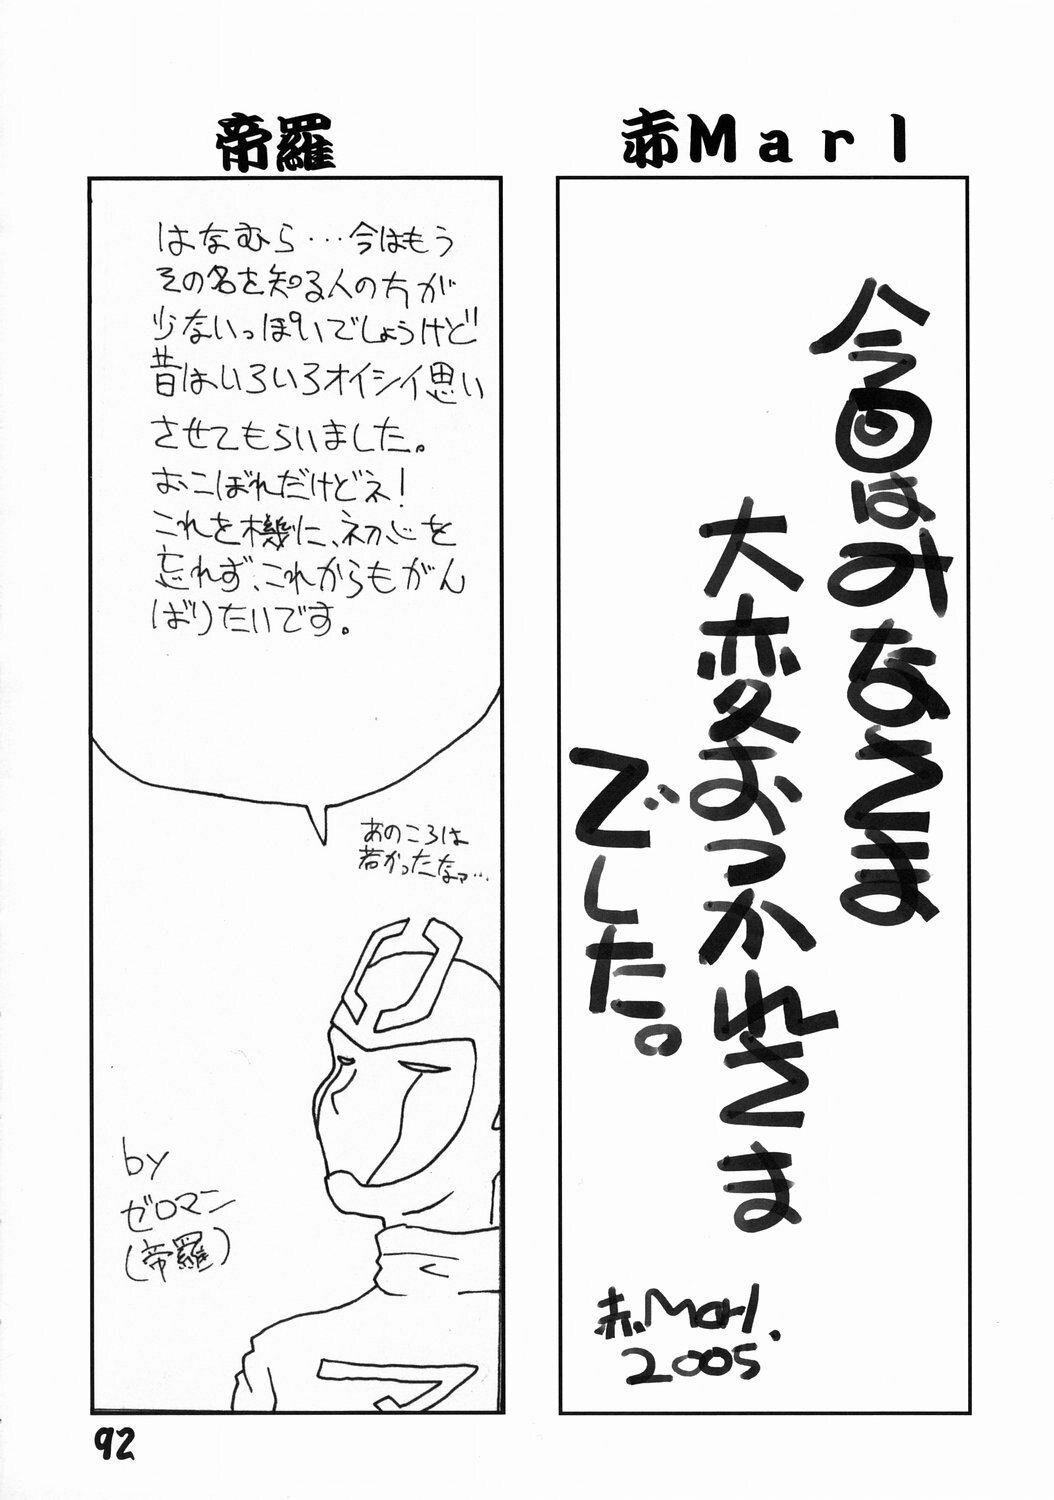 赤Marl
今回はみなさま
大変おつかれさま
でした。
赤Marl.
2005
帝羅
はなむら…今はもう
その名を知る人の方が
少ないっぽいでしょうけど
昔はいろいろオイシイ思い
させてもらいました。
おこぼれだけどネ!
これを機に、初心を
忘れず、これからもがん
ばりたいです。
あのころは
若かったなァ…
by
ゼロマン
(帝羅)
マ
92